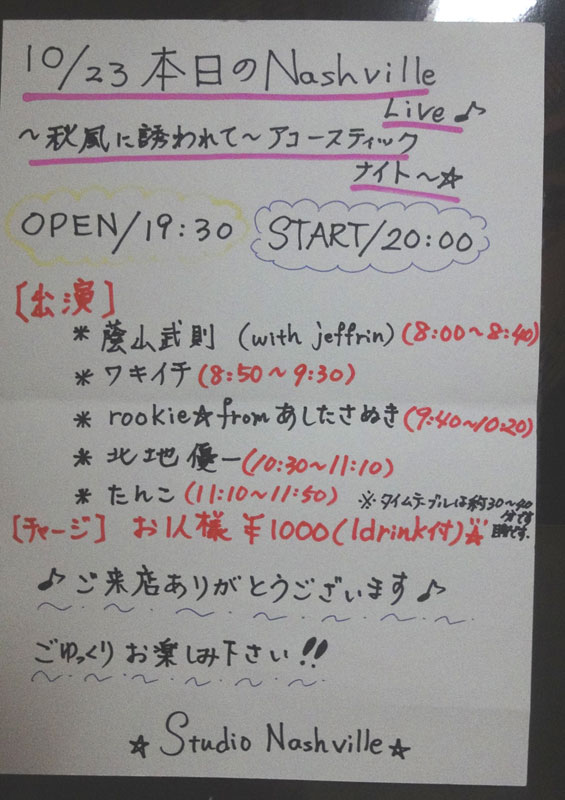 10/23 本日のNashville
Live♪
～秋風に誘われて～アコースティック
ナイト～☆
OPEN/19:30
START/20:00
[出演]
* 蔭山武則 (with jeffrin) (8:00～8:40)
* ワキイチ (8:50～9:30)
* rookie☆fromあしたさぬき (9:40～10:20)
* 北地優一 (10:30～11:10)
* たんこ (11:10～11:50)
※タイムテーブルは約30～40
分です
[チャージ] お1人様 ¥1000(1drink付)☆
♪ご来店ありがとうございます♪
ごゆっくりお楽しみ下さい!!
☆ Studio Nashville ☆